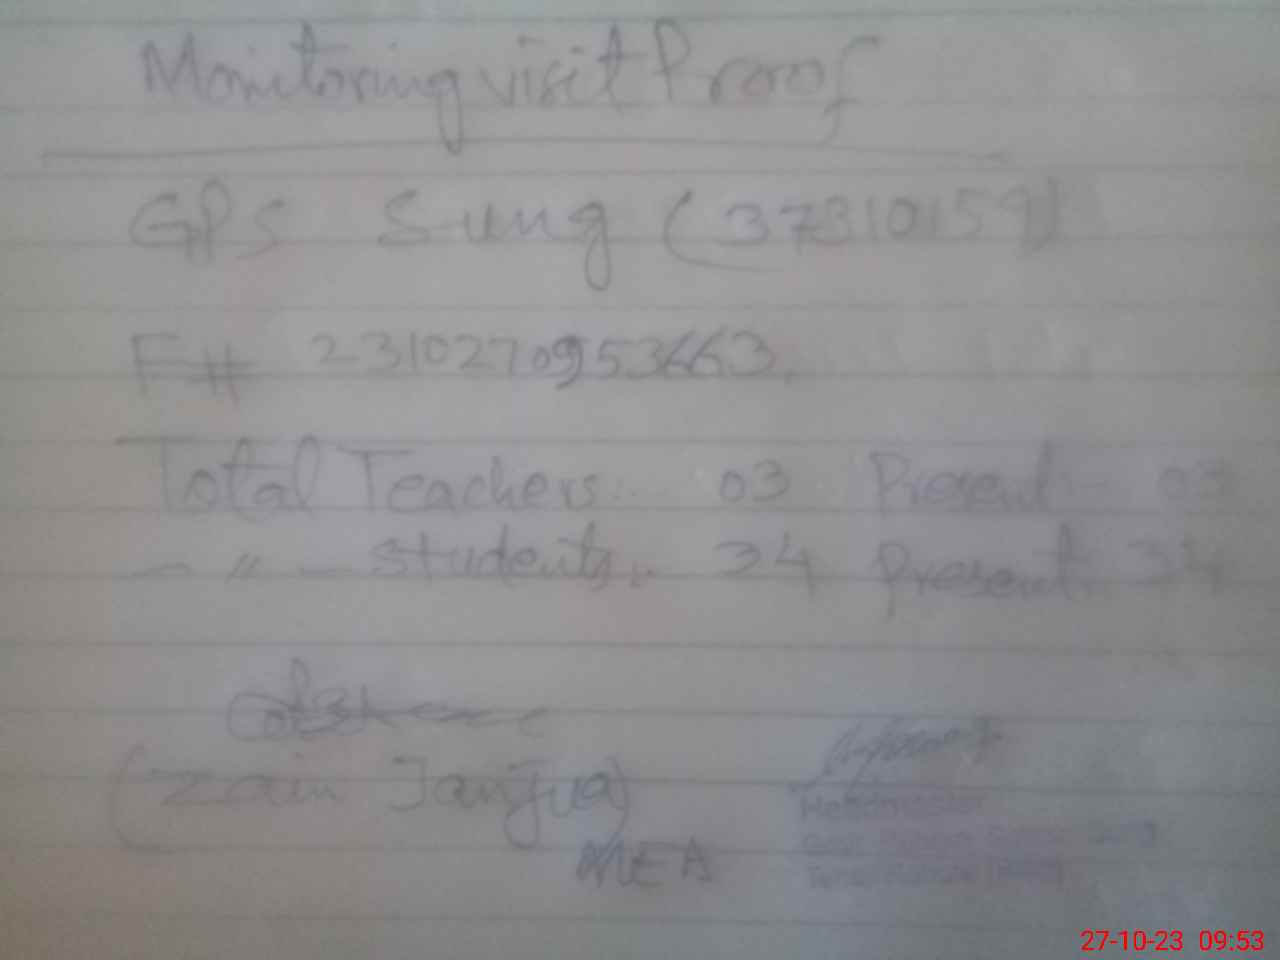 Monitoring visit Proof
GPS Sung (37310159)
F# 2310270953663
Total Teachers.. 03 Present - 03
- " - Students.. 34 Present. 34
(Zain Janjua)
MEA
Headmaster
27-10-23 09:53